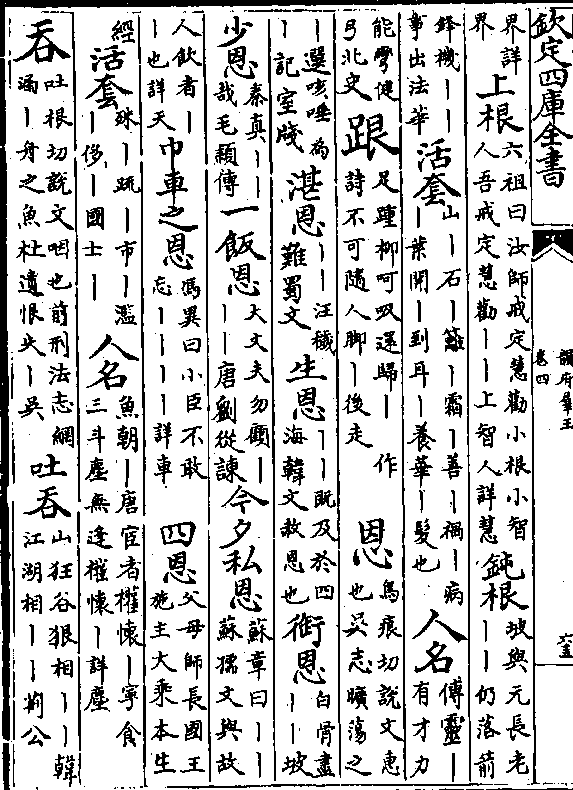 欽定四庫全書
韻府羣玉
卷四
界詳
界
上根
六祖曰汝師戒定慧勸小根小智
人吾戒定慧勸丨丨上智人詳慧
鈍根
坡與元長老
丨丨仍落箭
鋒機丨丨
事出法華
活套
山丨石丨籬丨霜丨善丨禍丨病
丨葉開丨到耳丨養華丨髮也
人名
傅靈丨
有才力
能彎健
弓北史
跟
足踵柳呵叹還歸丨作
詩不可隨人脚丨後走
恩
烏痕切說文惠
也吳志曠蕩之
丨選咳唾為
丨記室牋
湛恩
丨丨汪穢
難蜀文
生恩
丨丨既及於四
海韓文赦恩也
銜恩
白骨盡
丨丨坡
少恩
秦真丨丨
哉毛穎傳
一飯恩
大丈夫勿顧丨
丨丨唐劉從諫
今夕私恩
蘇章曰丨丨
蘇孺文與故
人飲者丨
丨也詳天
巾車之恩
馮異曰小臣不敢
忘丨丨丨丨詳車
四恩
父母師長國王
施主大乘本生
經
活套
殊丨疏丨市丨濫
丨侈丨國士丨丨
人名
魚朝丨唐宦者權懷丨寧食
三斗塵無逢權懷丨詳塵
吞
吐根切說文咽也前刑法志網
漏丨舟之魚杜遺恨失丨吳
吐吞
山狂谷狠相丨丨韓
江湖相丨丨荊公